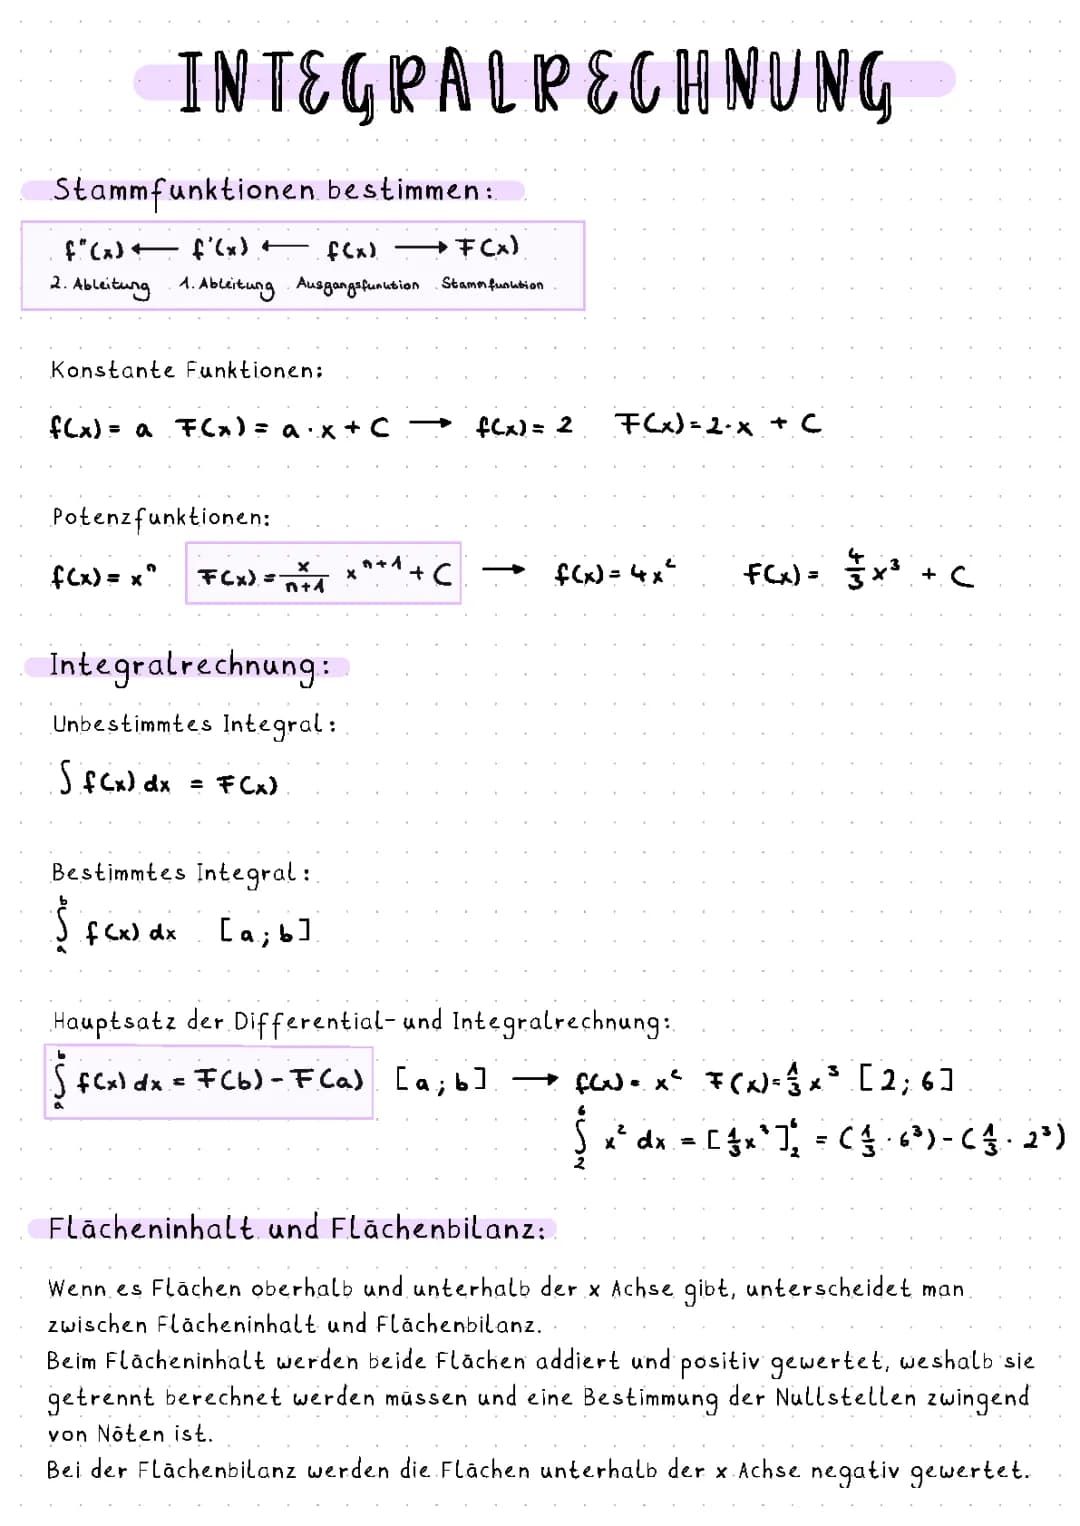 INTEGRALRECHNUNG
Stammfunktionen bestimmen:
f"(x) ← f'(x) ← f(x) → F(x)
2. Ableitung 1. Ableitung Ausgangsfunktion Stammfunktion
Konstante Funktionen:
f(x) = a F(x) = a · x + C → f(x) = 2 F(x) = 2 · x + C
Potenzfunktionen:
f(x) = xⁿ F(x) = x/(n+1) xⁿ⁺¹ + C → f(x) = 4x² F(x) = 4/3 x³ + C
Integralrechnung:
Unbestimmtes Integral:
∫ f(x) dx = F(x)
Bestimmtes Integral:
∫ₐᵇ f(x) dx [a; b]
Hauptsatz der Differential- und Integralrechnung:
∫ₐᵇ f(x) dx = F(b) - F(a) [a; b] → f(x) = x² F(x) = 1/3 x³ [2; 6]
∫₂⁶ x² dx = [1/3 x³]₂⁶ = (1/3 · 6³) - (1/3 · 2³)
Flächeninhalt und Flächenbilanz:
Wenn es Flächen oberhalb und unterhalb der x Achse gibt, unterscheidet man
zwischen Flächeninhalt und Flächenbilanz.
Beim Flächeninhalt werden beide Flächen addiert und positiv gewertet, weshalb sie
getrennt berechnet werden müssen und eine Bestimmung der Nullstellen zwingend
von Nöten ist.
Bei der Flächenbilanz werden die Flächen unterhalb der x Achse negativ gewertet.